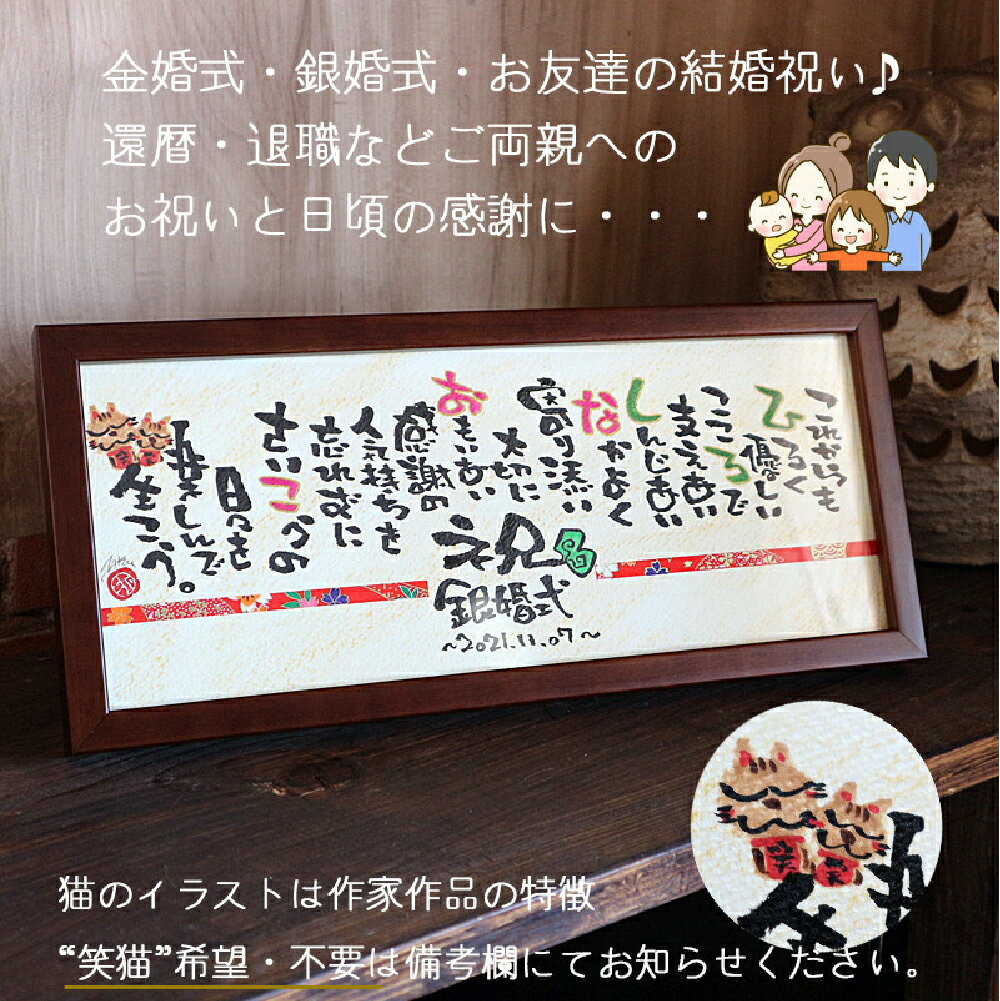 金婚式・銀婚式・お友達の結婚祝い♪
還暦・退職などご両親への
お祝いと日頃の感謝に・・・
これからも
ひろく
優しい
こころで
支えあい
しんじあい
なかよく
寄り添い
大切に
おもいあい
感謝の
気持ちを
忘れずに
さいこうの
日々を
楽しんで
生こう。
祝
銀婚式
~2021.11.07~
猫のイラストは作家作品の特徴
“笑猫”希望・不要は備考欄にてお知らせください。